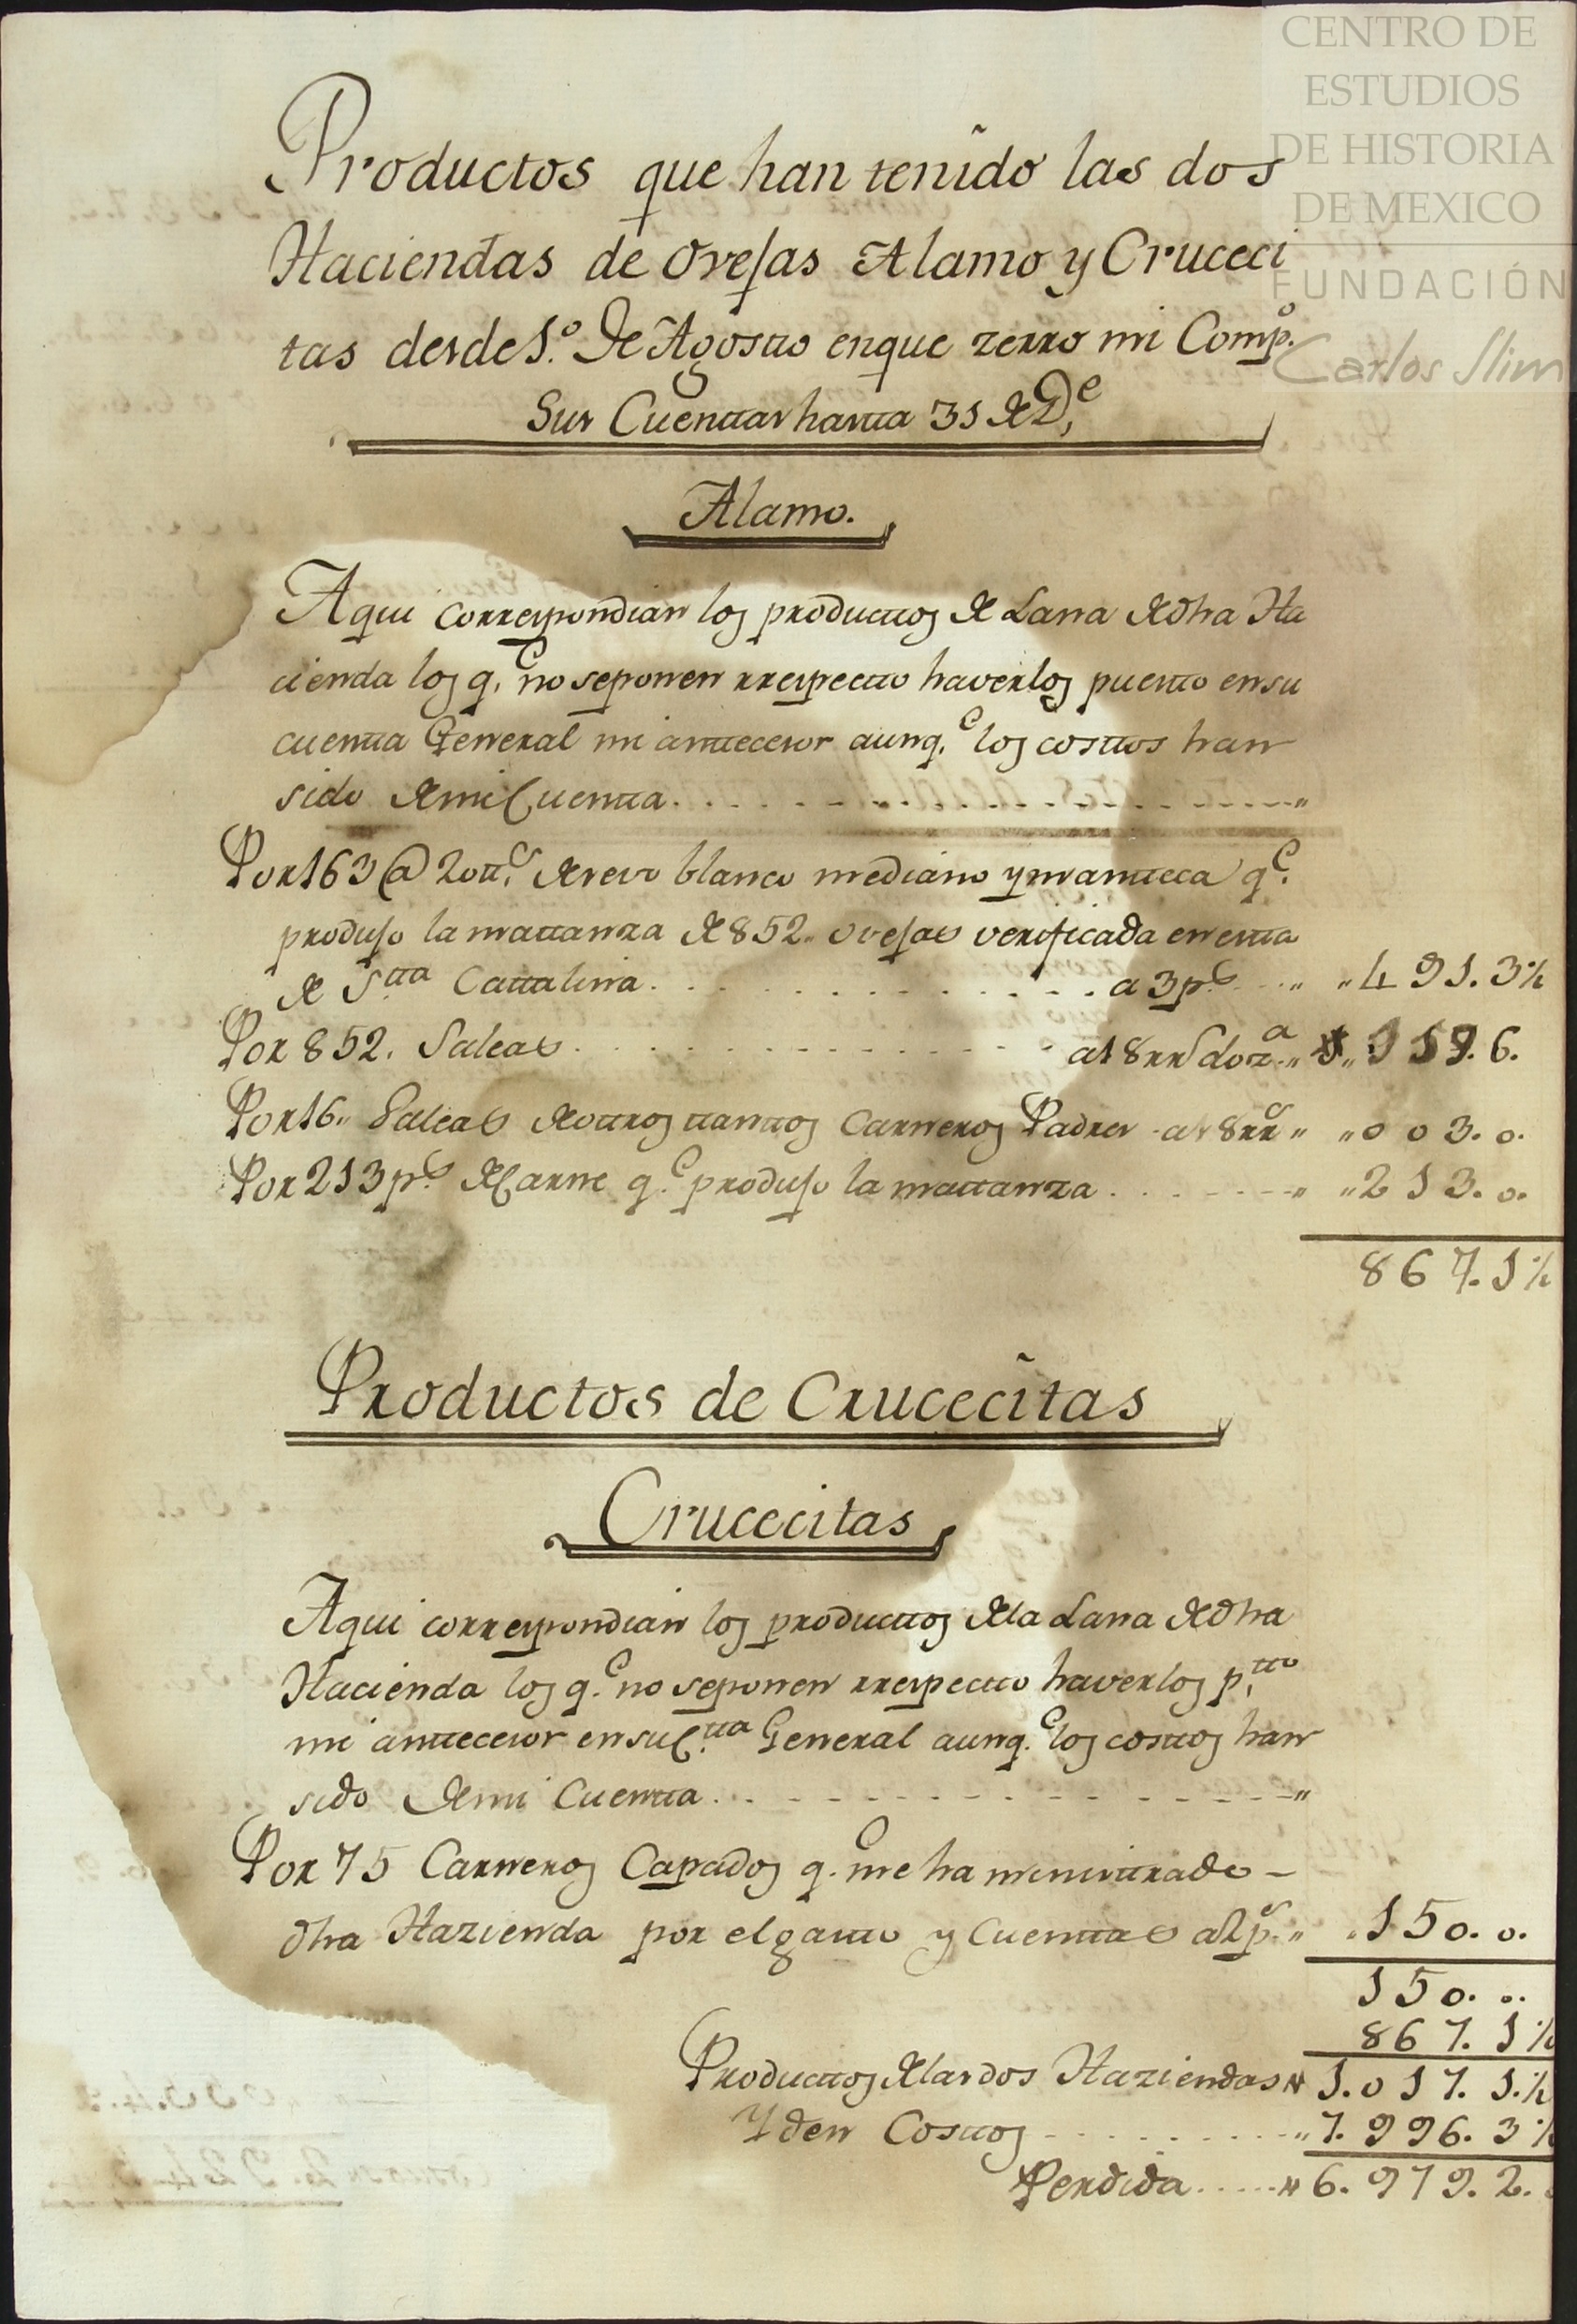 CENTRO DE
ESTUDIOS
DE HISTORIA
DE MEXICO
FUNDACIÓN
Carlos Slim
Productos que han tenido las dos
Haciendas de Ovejas Alamo y Cruceci
tas desde 1.º de Agosto enque zerro mi Comp.º
Sus Cuentas hasta 31 de D.e
Alamo.
Aqui correspondian los productos de Lana de dha Ha
cienda los q.e no seponen rrespecto haverlos puesto ensu
cuenta General mi antecesor aunq.e los costos han
sido demi Cuenta. "
Por 163 @ 20 tt.s de sevo blanco mediano y manteca q.e
produjo la matanza de 852.. ovejas verificada en esta
de S.ta Catalina. a 3 p.s " " 491. 3 ½
Por 852. Saleas a 18 rr.s doz.a " 159. 6.
Por 16.. Saleas de otros tantos Carneros Padres a 18 rr.s " " 003. 0.
Por 213 p.s de Carne q.e produjo la matanza " " 213. 0.
867. 1 ½
Productos de Crucecitas
Crucecitas
Aqui correspondian los productos dela Lana de dha
Hacienda los q.e no seponen rrespecto haverlos p.to
mi antecesor ensu C.ta General aunq.e los costos han
sido demi Cuenta. "
Por 75 Carneros Capados q.e me ha ministrado –
dha Hazienda por el gasto y Cuentas a 2 p.s " " 150. 0.
150. 0.
867. 1 ½
Productos delas dos Haziendas " 1.017. 1. ½
Yden Costos " 7.996. 3 ½
Perdida " 6.979. 2.